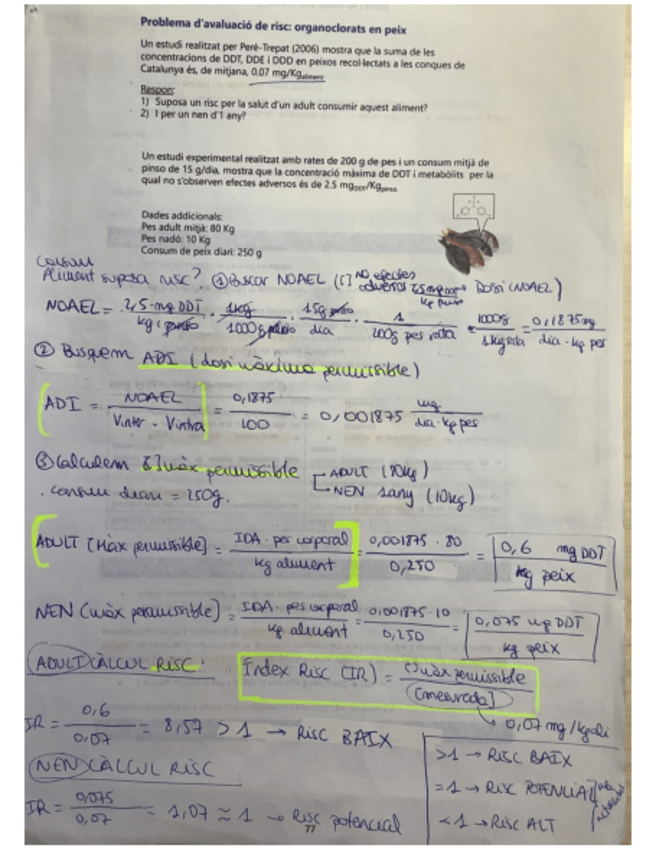 Problema d'avaluació de risc: organoclorats en peix
Un estudi realitzat per Peré-Trepat (2006) mostra que la suma de les
concentracions de DDT, DDE i DDD en peixos recol·lectats a les conques de
Catalunya és, de mitjana, 0.07 mg/Kg aliment
Respon:
1) Suposa un risc per la salut d'un adult consumir aquest aliment?
2) I per un nen d'1 any?
Un estudi experimental realitzat amb rates de 200 g de pes i un consum mitjà de
pinso de 15 g/dia, mostra que la concentració màxima de DDT i metabòlits per la
qual no s'observen efectes adversos és de 2.5 mgDDT/Kgpinso.
Dades addicionals:
Pes adult mitjà: 80 Kg
Pes nadó: 10 Kg
Consum de peix diari: 250 g
Consum
Aliment suposa risc? ① Buscar NOAEL ([] NO efectes adversos 2,5 mg / kg pinso → DOSSI NOAEL)
NOAEL = 2,5 mg DDT / kg pinso · 1kg / 1000g pinso · 15g pinso / dia · 1 / 200g pes rata · 1000g / 1kg rata = 0,1875 mg / dia · kg pes
② Busquem ADI (dossi màxima permissible)
ADI = NOAEL / Vinter · Vintra = 0,1875 / 100 = 0,001875 mg / dia · kg pes
③ Calculem [] màx permissible
ADULT (80kg)
NEN 1any (10kg)
. consum diari = 250g.
ADULT [màx permissible] = IDA · pes corporal / kg aliment = 0,001875 · 80 / 0,250 = 0,6 mg DDT / kg peix
NEN [màx permissible] = IDA · pes corporal / kg aliment = 0,001875 · 10 / 0,250 = 0,075 mg DDT / kg peix
ADULT CÀLCUL RISC: Índex Risc (IR) = [] màx permissible / [mesurada]
→ 0,07 mg/kg ali
IR = 0,6 / 0,07 = 8,57 > 1 → RISC BAIX
NEN CÀLCUL RISC
IR = 0,075 / 0,07 = 1,07 ≈ 1 → Risc potencial
>1 → RISC BAIX
=1 → RISC POTENCIAL
<1 → RISC ALT
77